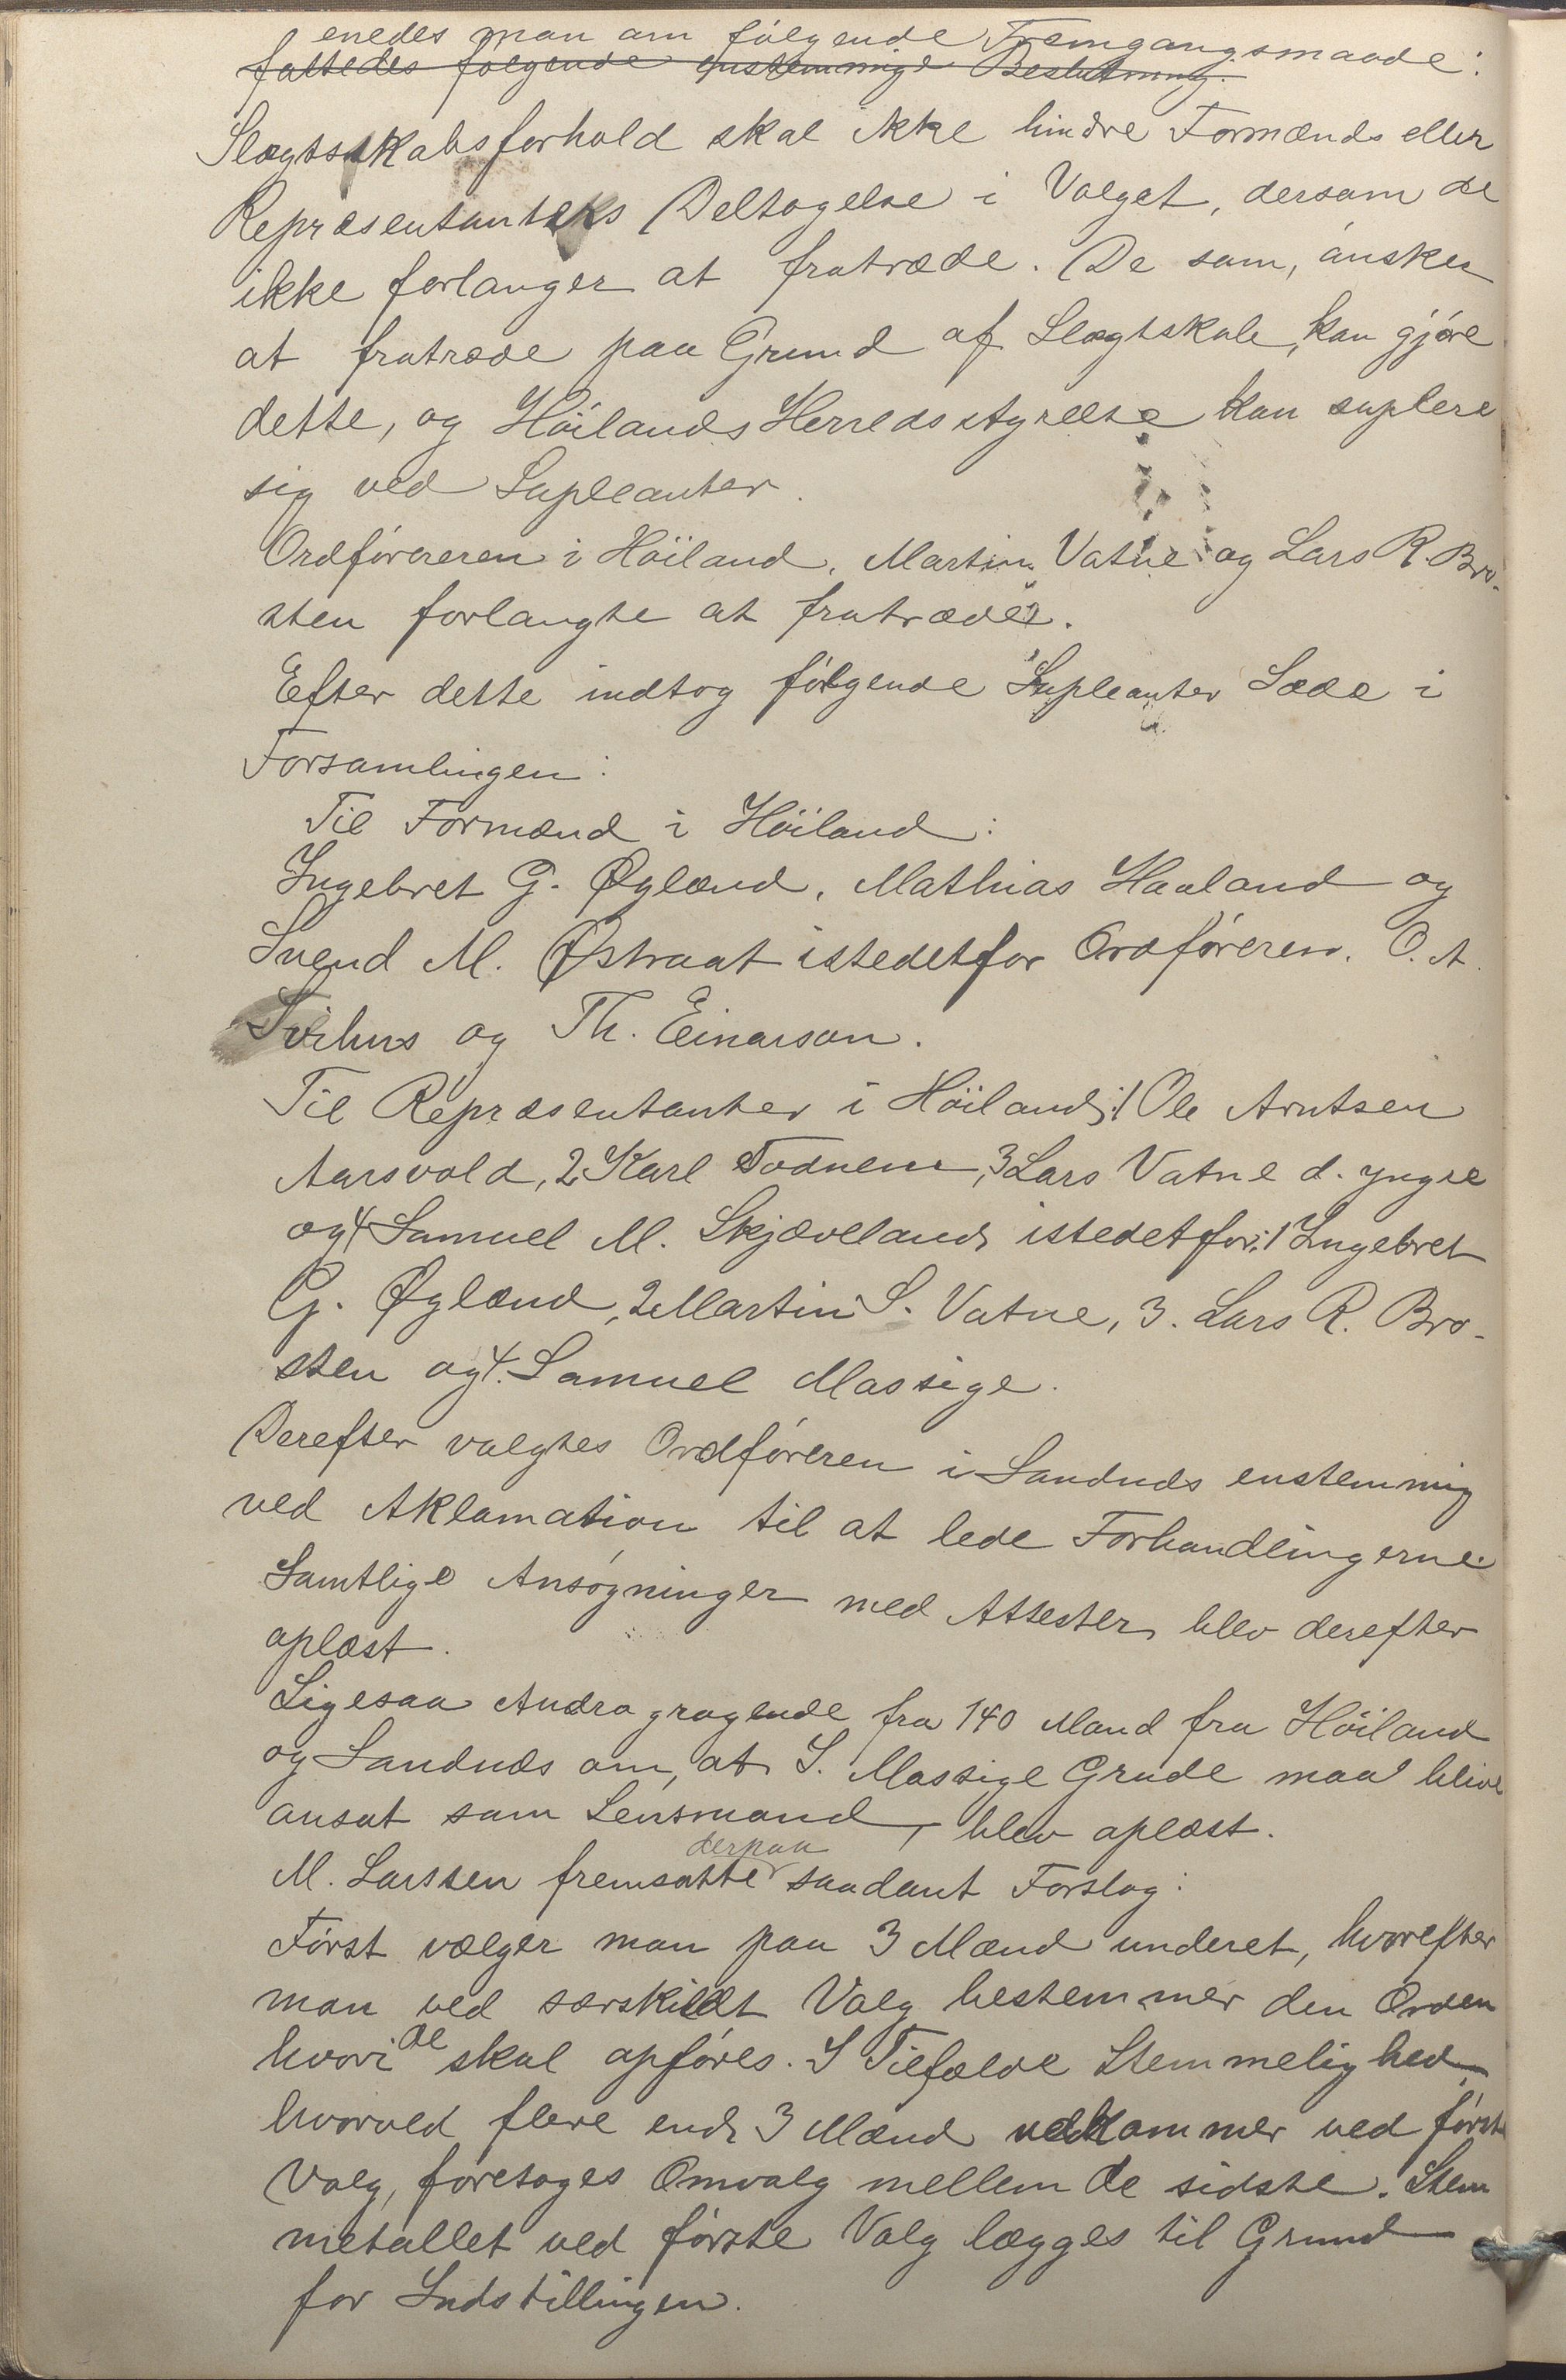 enedes man om følgende Fremgangsmaade:
fattedes følgende enstemmige Beslutning:
Slægtsskabsforhold skal ikke hindre Formænds eller
Repræsentanters Deltagelse i Valget, dersom de
ikke forlanger at fratræde. De som, ønsker
at fratræde paa Grund af Slægtskab, kan gjøre
dette, og Høilands Herredsstyrelse kan suplere
sig ved Supleanter.
Ordføreren i Høiland, Martin Vatne og Lars R. Bro-
sten forlangte at fratræde.
Efter dette indtog følgende Supleanter Sæde i
Forsamlingen:
Til Formænd i Høiland:
Ingebret G. Øglænd, Mathias Haaland og
Svend M. Østraat istedetfor Ordføreren, O. A.
Tvihus og Th. Einarson.
Til Repræsentanter i Høiland: 1 Ole Arntsen
Aarsvold, 2 Karl Todnem, 3 Lars Vatne d. yngre
og 4 Samuel M. Skjæveland, istedetfor: 1 Ingebret
G. Øglænd, 2 Martin S. Vatne, 3. Lars R. Bro-
sten og 4. Samuel Massige.
Derefter valgtes Ordføreren i Sandnds enstemmig
ved Aklamation til at lede Forhandlingerne.
Samtlige Ansøgninger med Attester blev derefter
oplæst.
Ligesaa Andragragende fra 140 Mand fra Høiland
og Sandnds om, at S. Massige Grude maa blive
ansat som Lensmand, blev oplæst.
derpaa
M. Larssen fremsatte saadant Forslag:
Først vælger man paa 3 Mænd underet, hvorefter
man ved særskildt Valg bestemmer den Orden
hvori de skal opføres. I Tilfælde Stemmelighed
hvorved flere end 3 Mænd vedkommer ved første
Valg, foretages Omvalg mellem de sidste. Stem
metallet ved første Valg lægges til Grund
for Indstillingen.